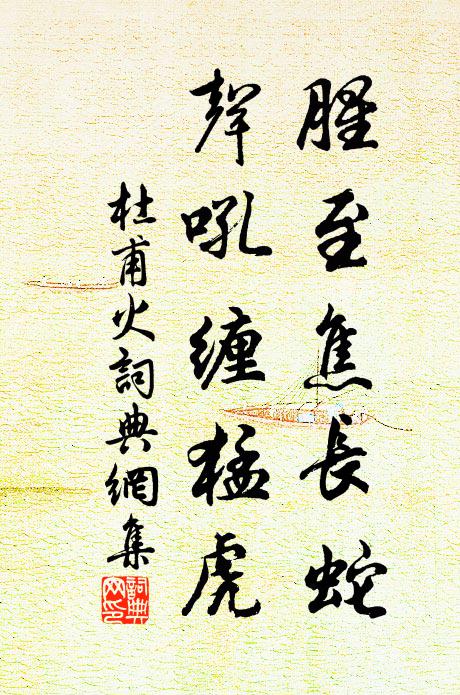 腥至焦長蛇
聲吼纏猛虎
杜甫火詞典網集
詞典网印